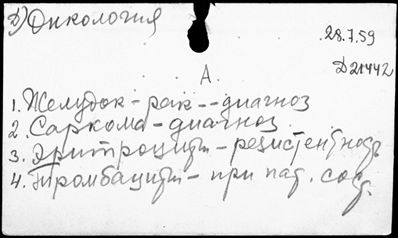 Д) Онкология
28.7.59
Д21442
А.
1. Желудок - рак -- диагноз
2. Саркома - диагноз
3. Эритроциты - резистентность
4. Тромбоциты - при пат. сост.